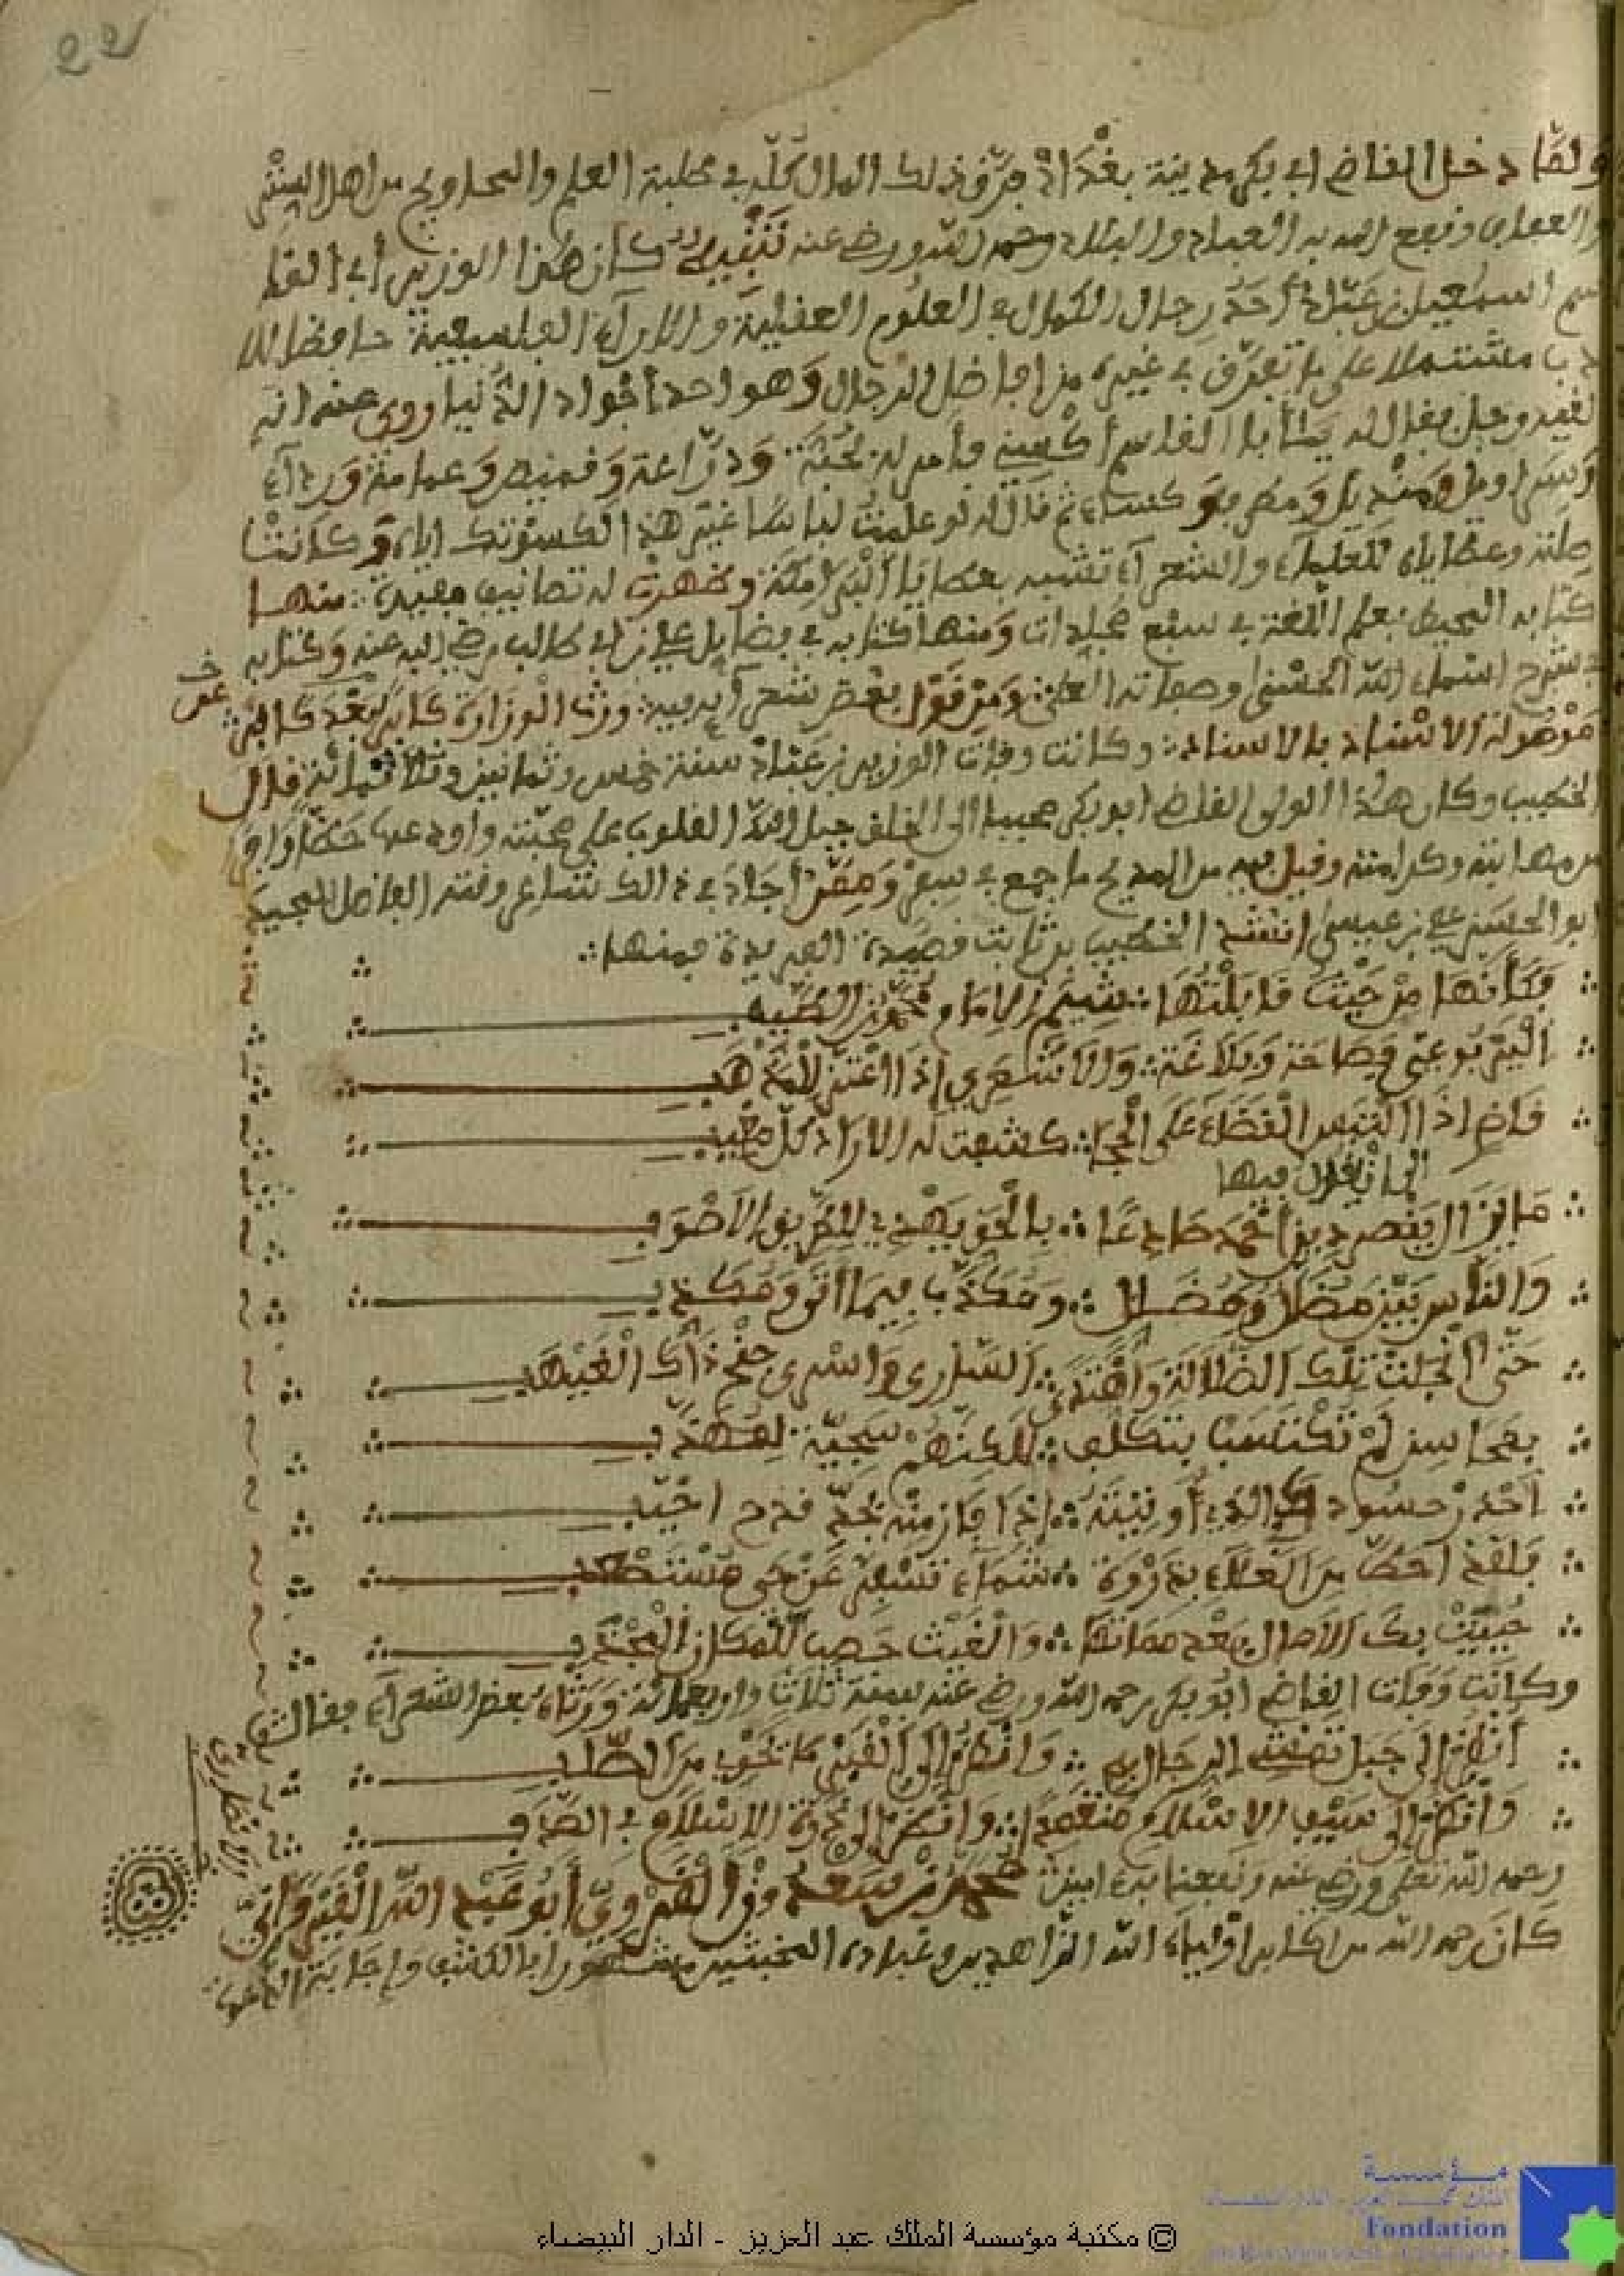 22
ولما دخل القاضي ابي بكر مدينة بغداد فرق ذلك المال كله في طلبة العلم والمحاويج من اهل الستر
والعفاف ونفع الله به العباد والبلاد رحمه الله ورضي عنه تنبيه كان هذا الوزير أبي القا
سم اسمعيل بن عباد أحد رجال الكمال في العلوم العقلية والاراء الفلسفية حافظا للا
دب مشتملا على ما تفرق في غيره من افاضل الرجال وهو احد أجواد الدنيا روي عنه انه
لقيه رجل فقال له يا أبا القاسم أكسني فأمر له بجبة ودراعة وقميص وعمامة ورداء
وسراويل ومنديل ومطرف وكساء ثم قال له لو علمت لباسا غير هذا لكسوتك اياه وكانت
صلته وعطاياه للعلماء والشعراء تشبه بعطايا البرامكة وظهرت له تصانيف مفيدة منها
كتابه المحيط بعلم اللغة في سبع مجلدات ومنها كتابه في فضايل علي بن ابي طالب رضي الله عنه وكتابه
في شرح اسماء الله الحسنى وصفاته العلى ومن قول بعض شعرآيه فيه ورث الوزارة كابرا بعد كابر
موصولة الاسناد بالاسناد وكانت وفات الوزير بن عباد سنة خمس وثمانين وثلاثمائة قال
الخطيب وكان هذا الولي القاضي ابو بكر حبيبا الى الخلق جبل الله القلوب على محبته
من مهابته وكرامته وقيل فيه من المديح ما جمع في سفر وممن أجاد في ذالك شاعر وقته الفاضل المجيد
ابو الحسن علي بن عيسى انشد الخطيب بن ثابت قصيدة الفريدة فمنها
وكأنها من حيث قابلتها شيم الامام محمد بن الطيب
اليعربوعي فصاحة وبلاغة والاشعري إذا اعتزى للمذهب
قاض اذا التبس القضاء على الحجا كشفت له الاراء كل مغيب
الى ان يقول فيها
ما زال ينصر دين أحمد صادعا بالحق يهدي للطريق الاصوب
والناس بين مضلل ومضلل ومكذب فيما اتى ومكذب
حتى انجلت تلك الضلالة واهتدى الساري واسرى جنح ذاك الغيهب
بمحاسن لم تكتسب بتكلف لكنهن سجية لمهذب
احذر حسودك
فلقد احط من العلاء بذروة شماء تسفر عن حمى مستصعب
حييت بك الآمال بعد مماتها والغيث خصب للمكان المجدب
وكانت وفات القاضي ابو بكر رحمه الله ورضي عنه سنة ثلاث واربعمائة ورثاه بعض الشعراء فقال
أنظر إلى جبل تمشي الرجال به وانظر إلى القبر ما تحوي من الصلب
وانظر إلى سيف الاسلام منغمدا وانظر إلى درة الاسلام في الصدف
رحمه الله تعلى ورضي عنه ونفعنا به امين محمد بن سعدون القروي أبو عبد الله القيرواني
كان رحمه الله من اكابر اولياء الله الزاهدين وعباده المخبتين مشهورا بالكشف وإجابة الدعوة
© مكتبة مؤسسة الملك عبد العزيز - الدار البيضاء
مؤسسة
Fondation